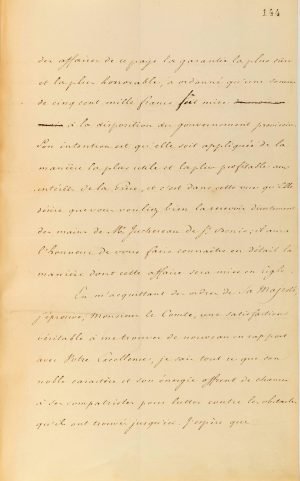 144
des affaires de ce pays la garantie la plus sûre
et la plus honorable, a ordonné qu'une somme
de cinq cent mille francs fut mise
à la disposition du gouvernement provisoire.
Son intention est qu'elle soit appliquée de la
manière la plus utile et la plus profitable aux
intérêts de la Grèce, et c'est dans cette vue qu'Elle
désire que vous vouliez bien la recevoir directement
des mains de Mr. Juchereau de St. Denis, et aura
l'honneur de vous faire connaître en détail la
manière dont cette affaire sera mise en règle.
En m'acquittant des ordres de Sa Majesté
j'éprouve, Monsieur le Comte, une satisfaction
véritable à me trouver de nouveau en rapport
avec Votre Excellence, je sais tout ce que son
noble caractère et son énergie offrent de chances
à ses compatriotes pour lutter contre les obstacles
qu'ils ont trouvés jusqu'ici. J'espère que